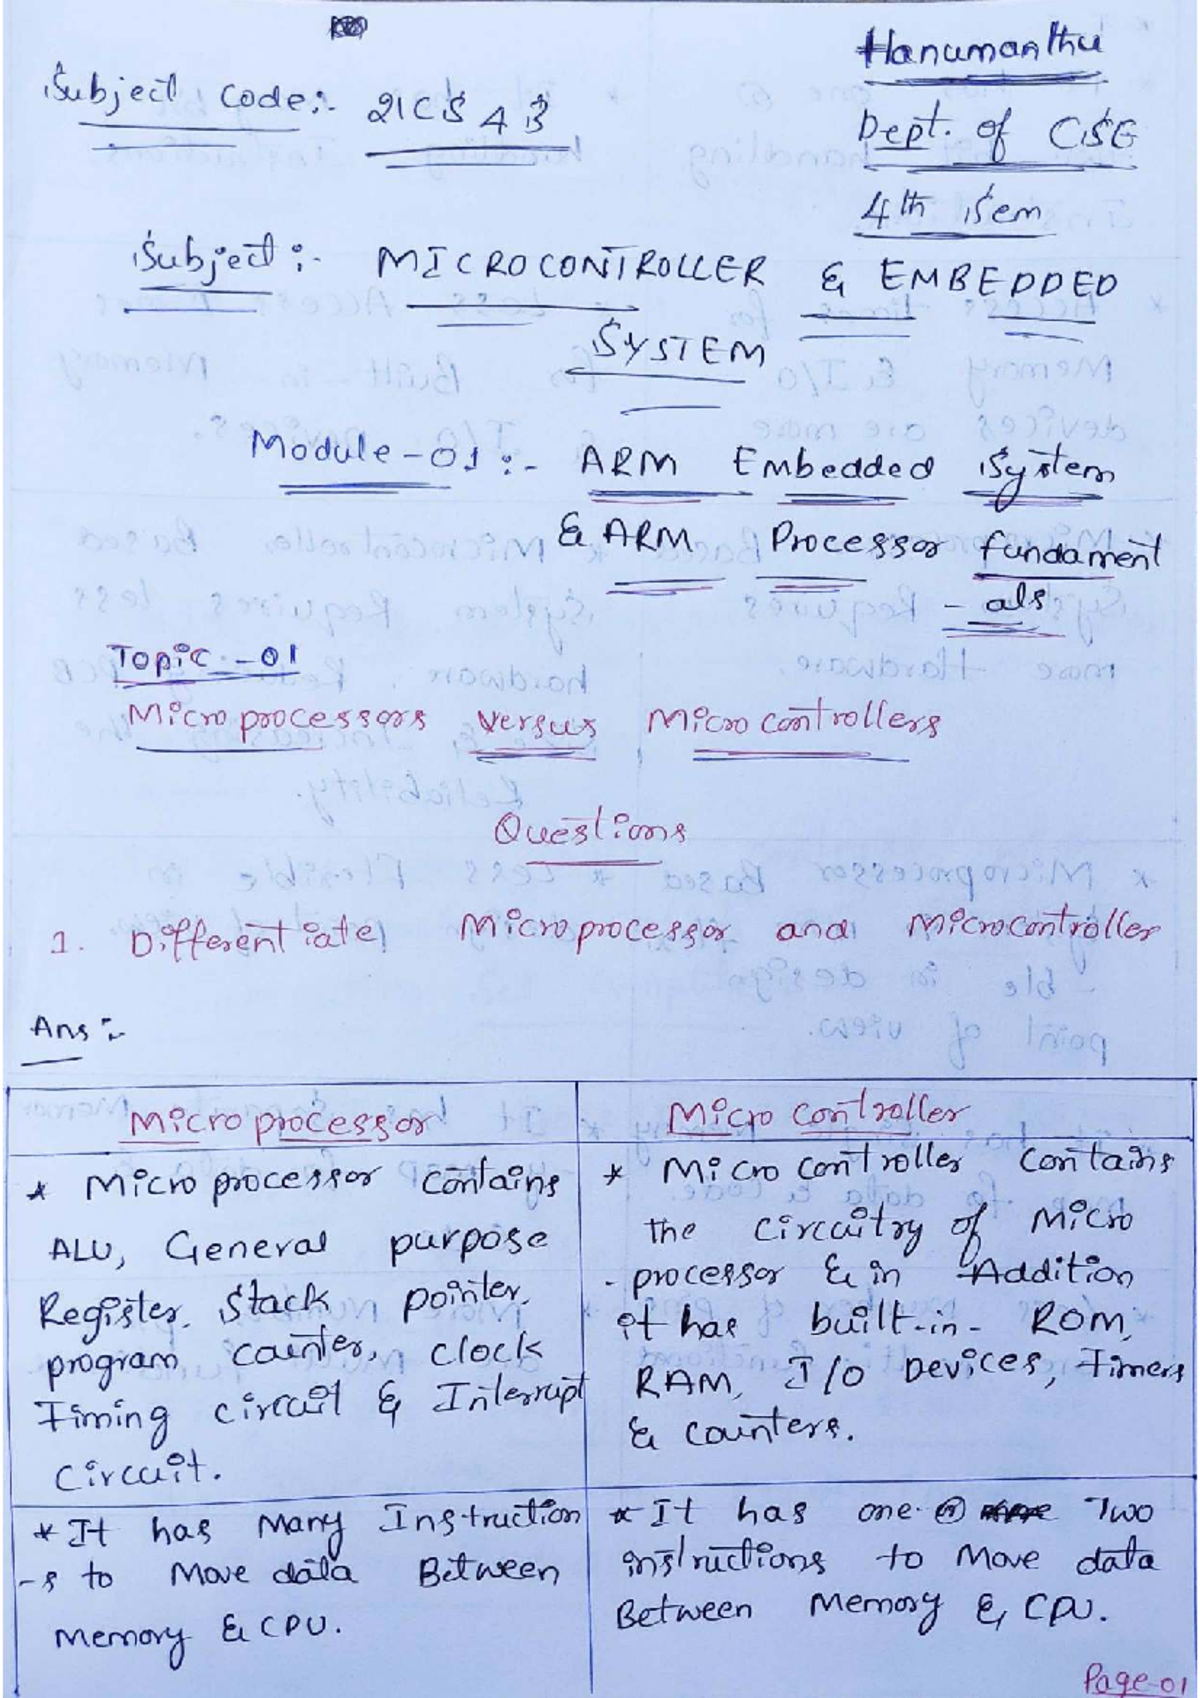 Hanumanthu
Subject Code:- 21CS43
Dept. of CSE
4th Sem
Subject:- MICROCONTROLLER & EMBEDDED
SYSTEM
Module-01:- ARM Embedded System
& ARM Processor fundament
- als
Topic-01
Microprocessors versus Microcontrollers
Questions
1. Differentiate Microprocessor and Microcontroller
Ans:-
Microprocessor
* Microprocessor contains
ALU, General purpose
Register, Stack pointer,
program counter, clock
Timing circuit & Interrupt
circuit.
* It has Many Instruction
-s to Move data Between
Memory & CPU.
Micro controller
* Micro controller contains
the circuitry of Micro
- processor & in Addition
it has built-in- ROM,
RAM, I/O Devices, Timers
& counters.
* It has one Two
instructions to Move data
Between Memory & CPU.
Page-01